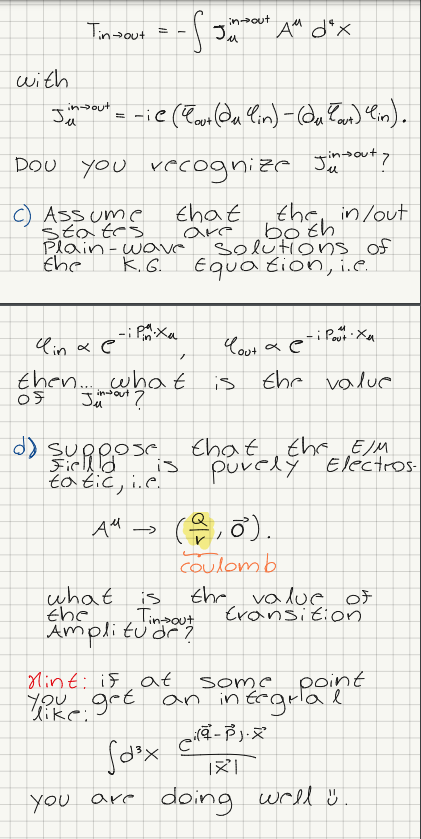 T_{in→out} = -∫ J_μ^{in→out} A^μ d⁴x
with
J_μ^{in→out} = -ie (φ̄_{out}(∂_μ φ_{in}) - (∂_μ φ̄_{out}) φ_{in}).
Dou you recognize J_μ^{in→out}?
c) Assume that the in/out
states are both
Plain-wave solutions of
the K.G. Equation, i.e.
φ_{in} ∝ e^{-i p_{in}^μ · x_μ}, φ_{out} ∝ e^{-i p_{out}^μ · x_μ}
then... what is the value
of J_μ^{in→out}?
d) suppose that the E/M
Fielld is purely Electros-
tatic, i.e.
A^μ → (Q/r, 0⃗).
coulomb
what is the value of
the T_{in→out} transition
Amplitude?
Hint: if at some point
you get an integral
like:
∫d³x e^{i(q⃗-p⃗)·x⃗}/|x⃗|
you are doing well ü.